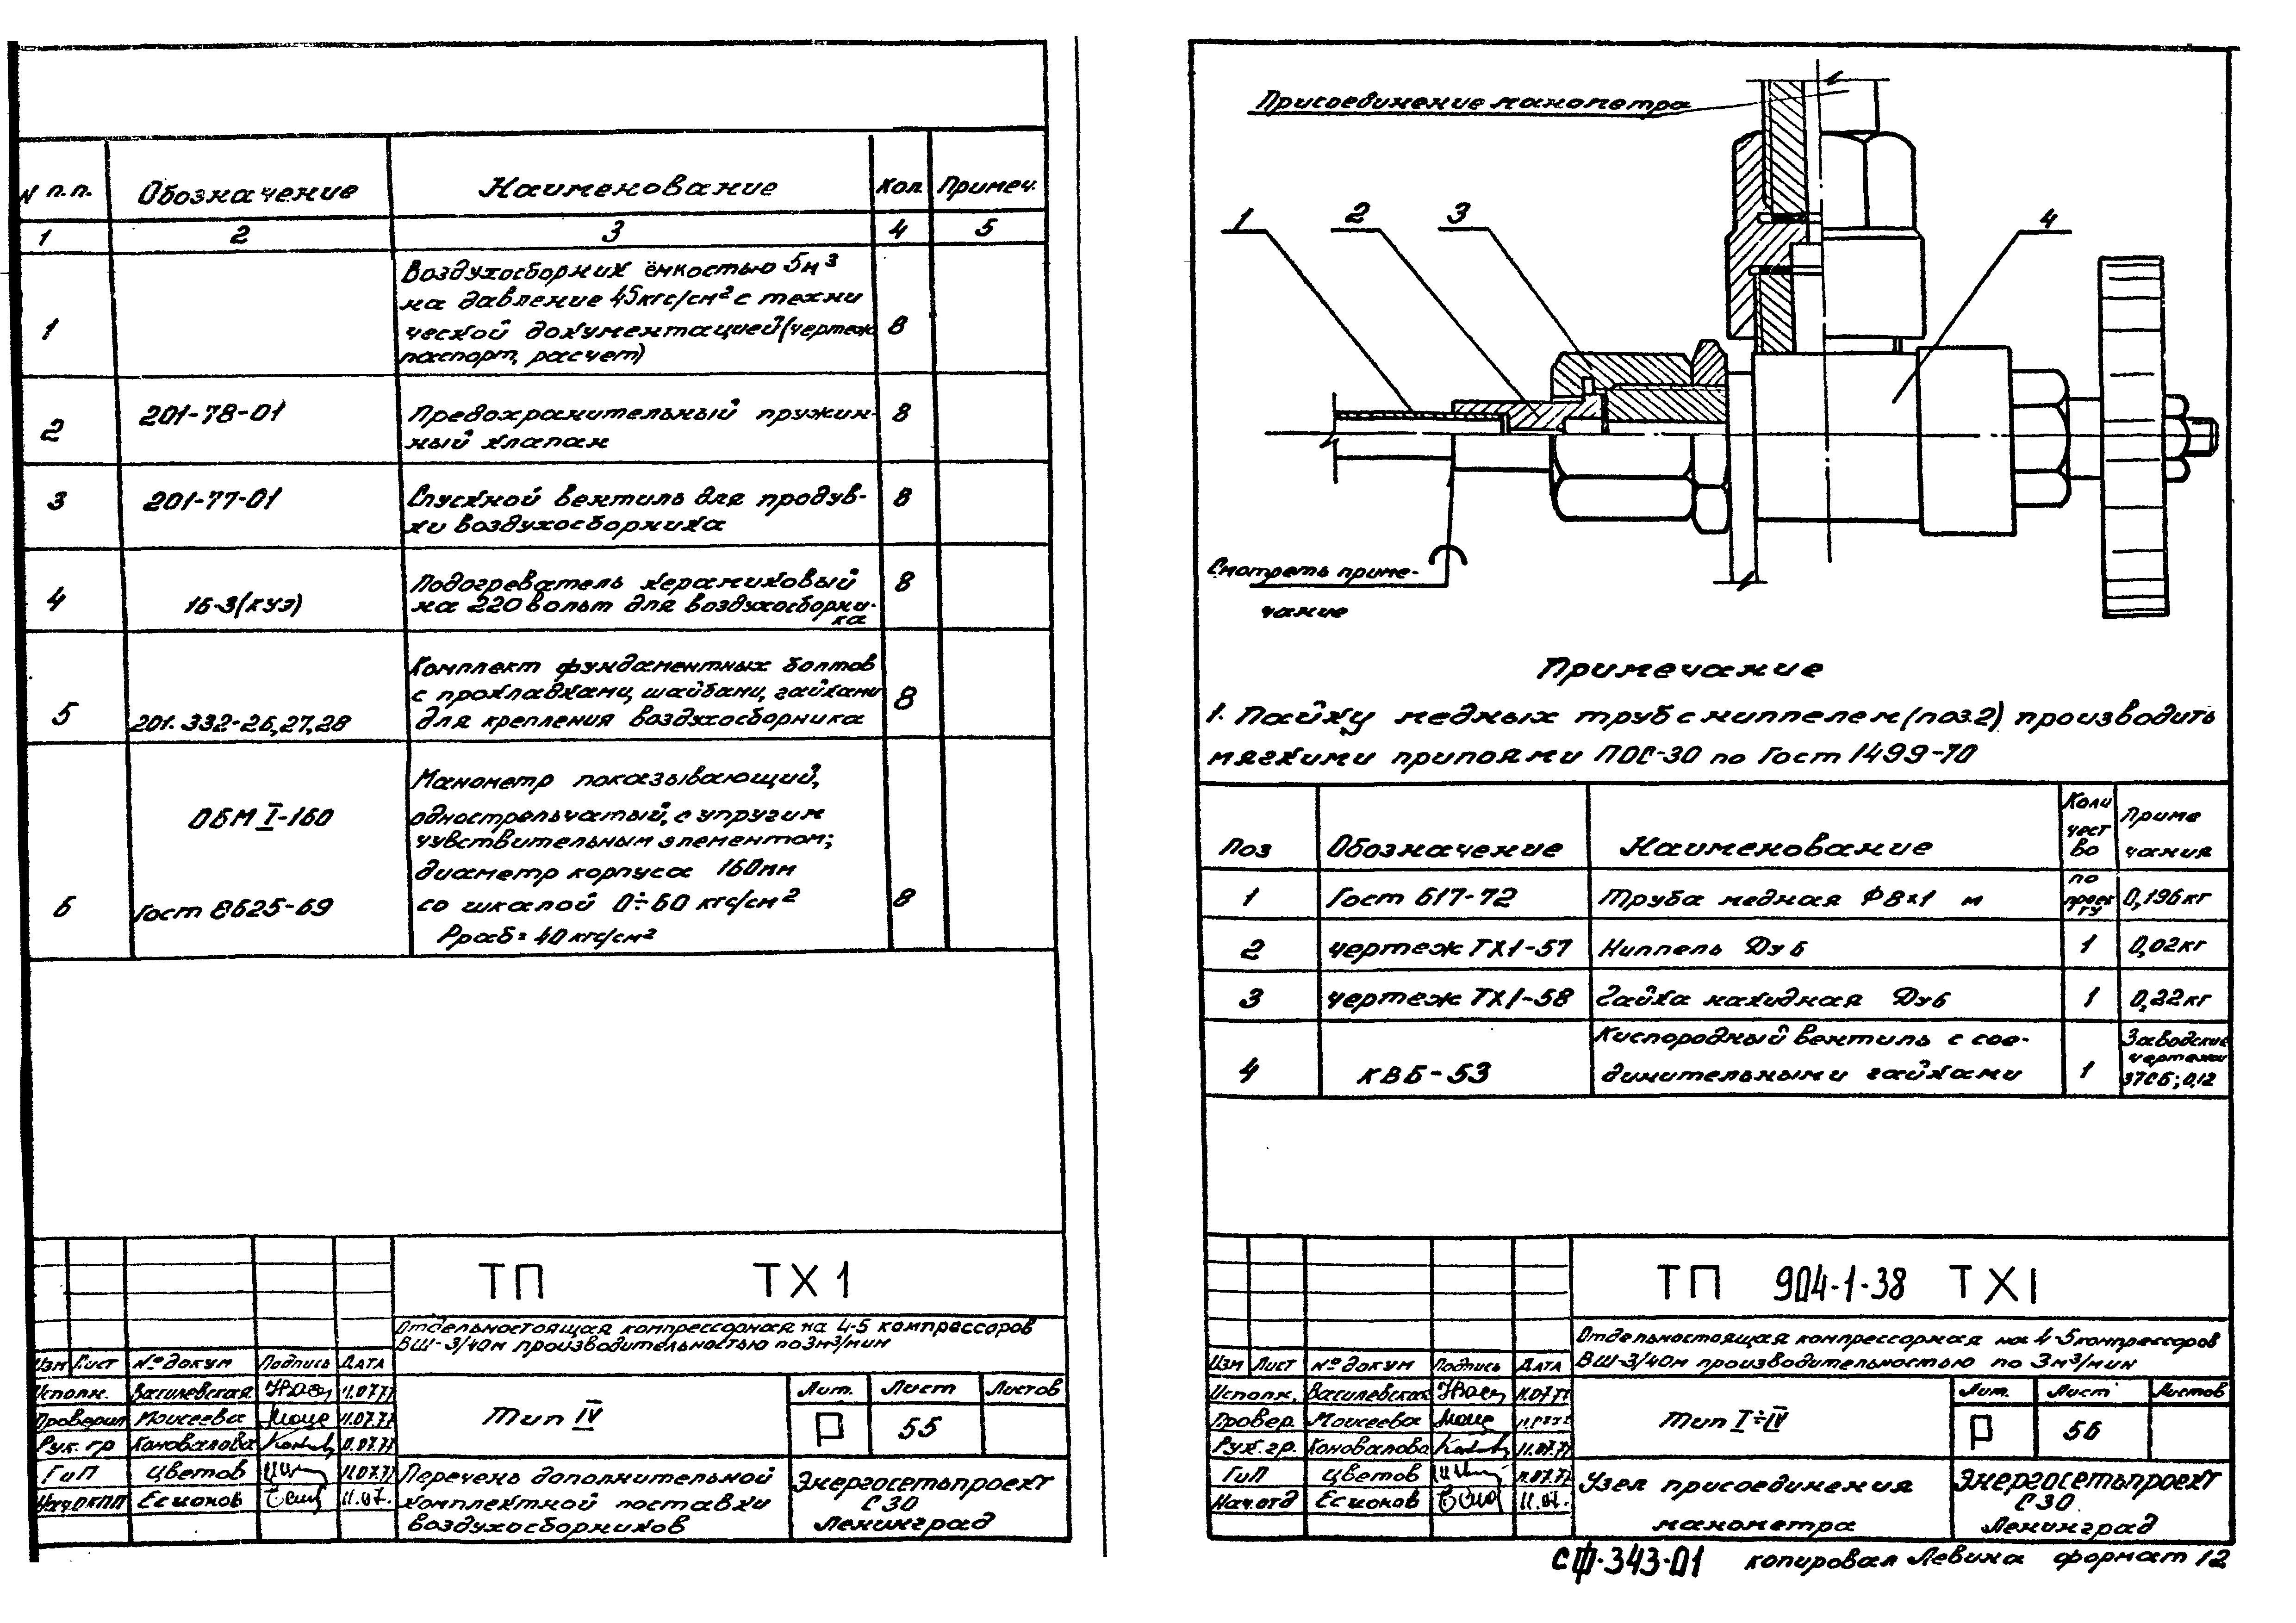 N п.п. Обозначение Наименование Кол. Примеч.
1 2 3 4 5
Воздухосборник ёмкостью 5м³
на давление 45кгс/см² с техни
1 ческой документацией (чертеж 8
паспорт, расчет)
2 201-78-01 Предохранительный пружин- 8
ный клапан
3 201-77-01 Спускной вентиль для продув- 8
ки воздухосборника
4 16-3(КУЭ) Подогреватель керамиковый 8
на 220 вольт для воздухосборни-
ка
Комплект фундаментных болтов
с прокладками, шайбами, гайками 8
5 201.332-26,27,28 для крепления воздухосборника
Манометр показывающий,
ОБМ I-160 однострельчатый, с упругим
чувствительным элементом;
диаметр корпуса 160мм
6 Гост 8625-69 со шкалой 0÷60 кгс/см² 8
Рраб = 40 кгс/см²
ТП ТХ1
Отдельностоящая компрессорная на 4-5 компрессоров
ВШ-3/40м производительностью по 3м³/мин
Изм Лист № докум Подпись Дата
Исполн. Василевская 11.07.77
Проверил Моисеева 11.07.77
Рук. гр Коновалова 11.07.77
ГиП Цветов 11.07.77
Нач.ОКПП Есионов 11.07.
Тип IV
Лит. Лист Листов
Р 55
Перечень дополнительной
комплектной поставки
воздухосборников
Энергосетьпроект
СЗО
Ленинград
Присоединение манометра
1 2 3 4
Смотреть приме-
чание
Примечание
1. Пайку медных труб с ниппелем (поз.2) производить
мягкими припоями ПОС-30 по Гост 1499-70
Поз Обозначение Наименование Коли чест во Приме чания
1 Гост 617-72 Труба медная Ф8×1 м по проек ту 0,196кг
2 чертеж ТХ1-57 Ниппель Ду 6 1 0,02кг
3 чертеж ТХ1-58 Гайка накидная Ду6 1 0,22кг
4 КВБ-53 Кислородный вентиль с сое- динительными гайками 1 Заводские чертежи 37СБ; 0,12
ТП 904-1-38 ТХ1
Отдельностоящая компрессорная на 4-5 компрессоров
ВШ-3/40м производительностью по 3м³/мин
Изм Лист № докум Подпись Дата
Исполн. Василевская 11.07.77
Провер. Моисеева
Рук. гр. Коновалова 11.07.77
ГиП Цветов 11.07.77
Нач.отд Есионов 11.07.
Тип I÷IV
Лит. Лист Листов
Р 56
Узел присоединения
манометра
Энергосетьпроект
СЗО
Ленинград
СФ-343-01 копировал Левина формат 12